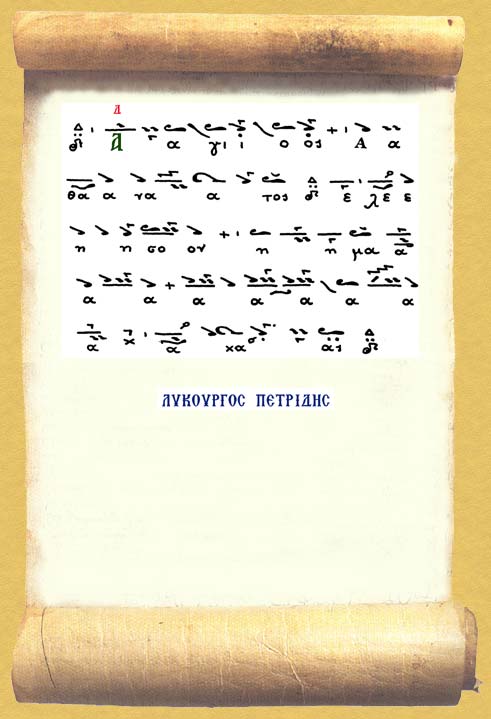 Α α γι ι ο ος Α α
θα α να α τος ε λε ε
η η σο ον η η μα α
α α α α α α α
α χ α χα ας
ΛΥΚΟΥΡΓΟΣ ΠΕΤΡΙΔΗΣ